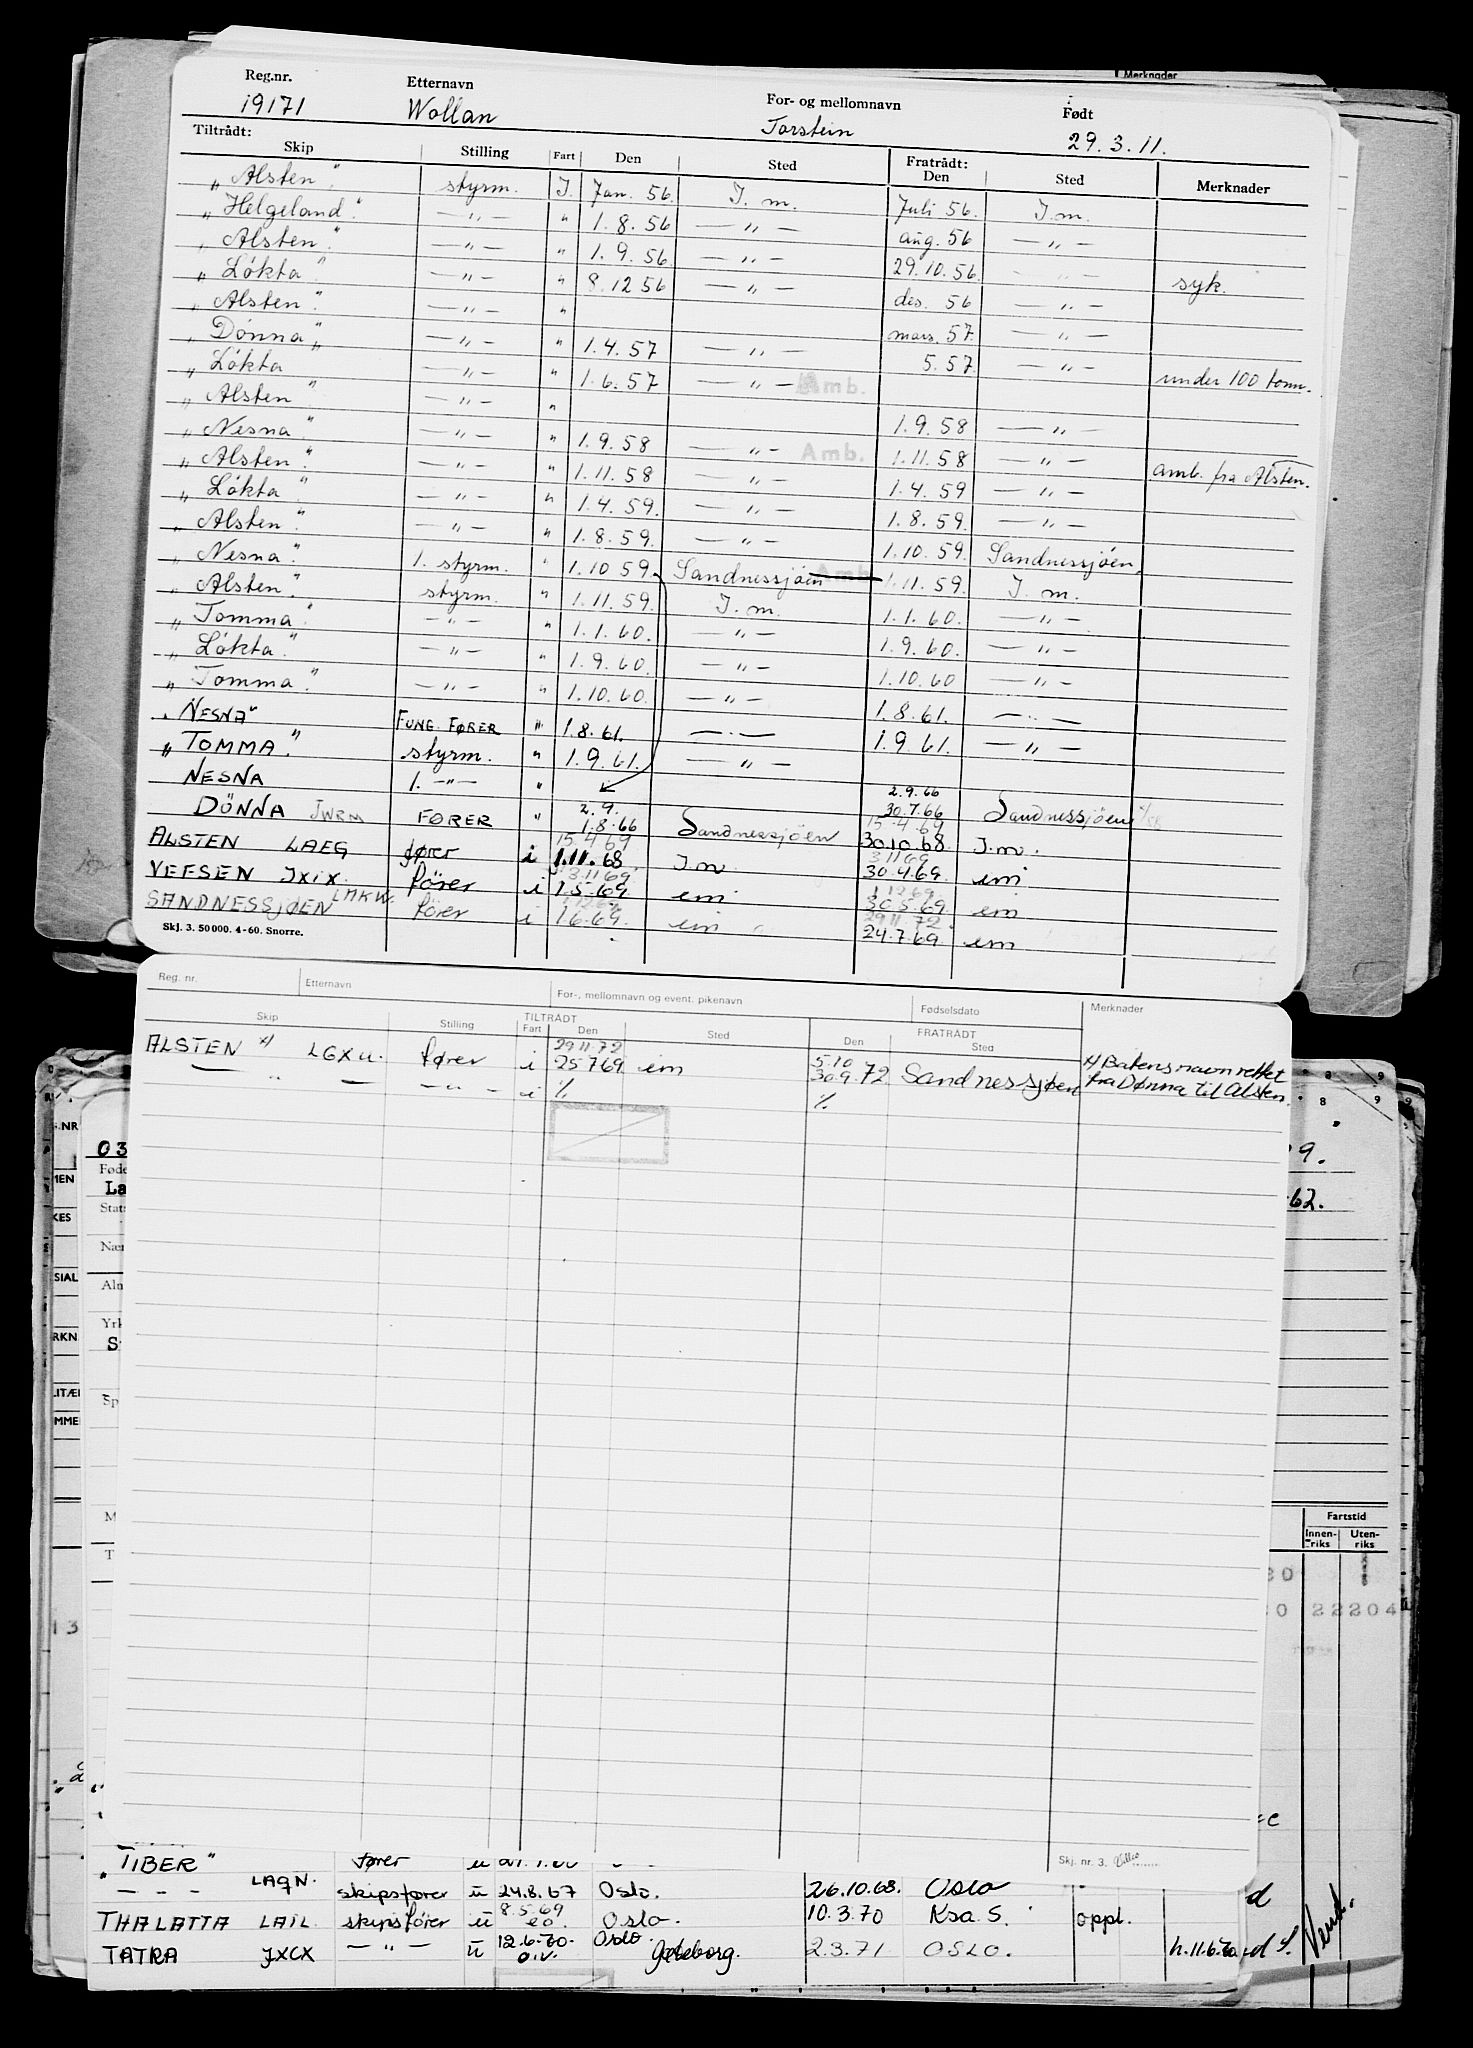 Merknader
Reg.nr. Etternavn For- og mellomnavn Født
19171 Wollan Torstein 29.3.11.
Tiltrådt: Fratrådt:
Skip Stilling Fart Den Sted Den Sted Merknader
„Alsten". styrm. I. Jan. 56. I. m. Juli 56. I.m.
„Helgeland". —„— " 1.8.56 —„— aug. 56 —„—
„Alsten". —„— " 1.9.56. —„— 29.10.56. —„— syk.
„Lökta" —„— " 8.12 56 —„— des. 56 —„—
„Alsten". —„— " mars. 57. —„—
„Dönna" —„— " 1.4.57 —„— 5.57. —„—
„Lökta —„— " 1.6.57 —„— Amb. under 100 tonn.
„Alsten" —„— " 1.9.58 —„—
„Nesna". —„— " 1.9.58 —„— Amb. 1.11.58 —„— amb. fra Alsten.
„Alsten". —„— " 1.11.58 —„— 1.4.59 —„—
„Lökta". —„— " 1.4.59. —„— 1.8.59. —„—
„Alsten". —„— " 1.8.59. —„— 1.10.59. Sandnessjöen.
„Nesna". 1. styrm. " 1.10 59. Sandnessjöen Amb 1.11.59. I. m.
„Alsten". styrm. " 1.11.59. I. m. 1.1.60. —„—
„Tomma". —„— " 1.1.60. —„— 1.9.60. —„—
„Lökta". —„— " 1.9.60. —„— 1.10.60 —„—
„Tomma". —„— " 1.10.60. —„— 1.8.61. —„—
„NESNA" FUNG. FØRER " 1.8.61. —„— 1.9.61. —„—
„TOMMA". styrm. " 1.9.61. —„—
NESNA 1. —„— " 2.9.66
2.9. 30.7.66 Sandnessjöen
DÖNNA JWRM FØRER " 1.8.66 Sandnessjöen 15.4.69
15.4.69 30.10.68. I.m.
ALSTEN LAEG fører i 1.11.68 I m 3 11 69
3.11 69 30.4.69. em
VEFSEN JXIX. fører i 1.5.69 em 1.12 69
1.12.69 30.5.69 em
SANDNESSJØEN LAKW. fører i 1.6.69. em 29 11.72
24.7.69 em
Skj. 3. 50000. 4-60. Snorre.
Reg. nr. Etternavn For-, mellomnavn og event. pikenavn Fødselsdato Merknader
TILTRÅDT FRATRÅDT
Skip Stilling Fart Den Sted Den Sted
29 11.72 5.10
ALSTEN x) LGXU. fører i 25 7 69 em 30.9.72 Sandnessjøen x) Båtens navn rettet
— „ — —„— i %. %. fra Dønna til Alsten.
S.NR
03
Føde
La
Stats
Nær
Aln
Yrk
S
Sp
M
T
MEN
KES
SIAL
RKN
LITÆR
MME
13
8 9
8 9
9.
62.
Fartstid
Innen-riks Uten-riks
20
0 22204
Skj. nr. 3.
„TIBER" fører u
— — — LAQN. skipsfører u 24.8.67 Oslo. 26.10.68. Oslo
8.5.69
THALATTA LAIL. skipsfører u eo. Oslo. 10.3.70 Ksa. S. oppl.
12.6.70. Oslo.
TATRA JXCX —„— u o.v. Gøteborg. 2.3.71 OSLO. h.11.6.70
Vend.